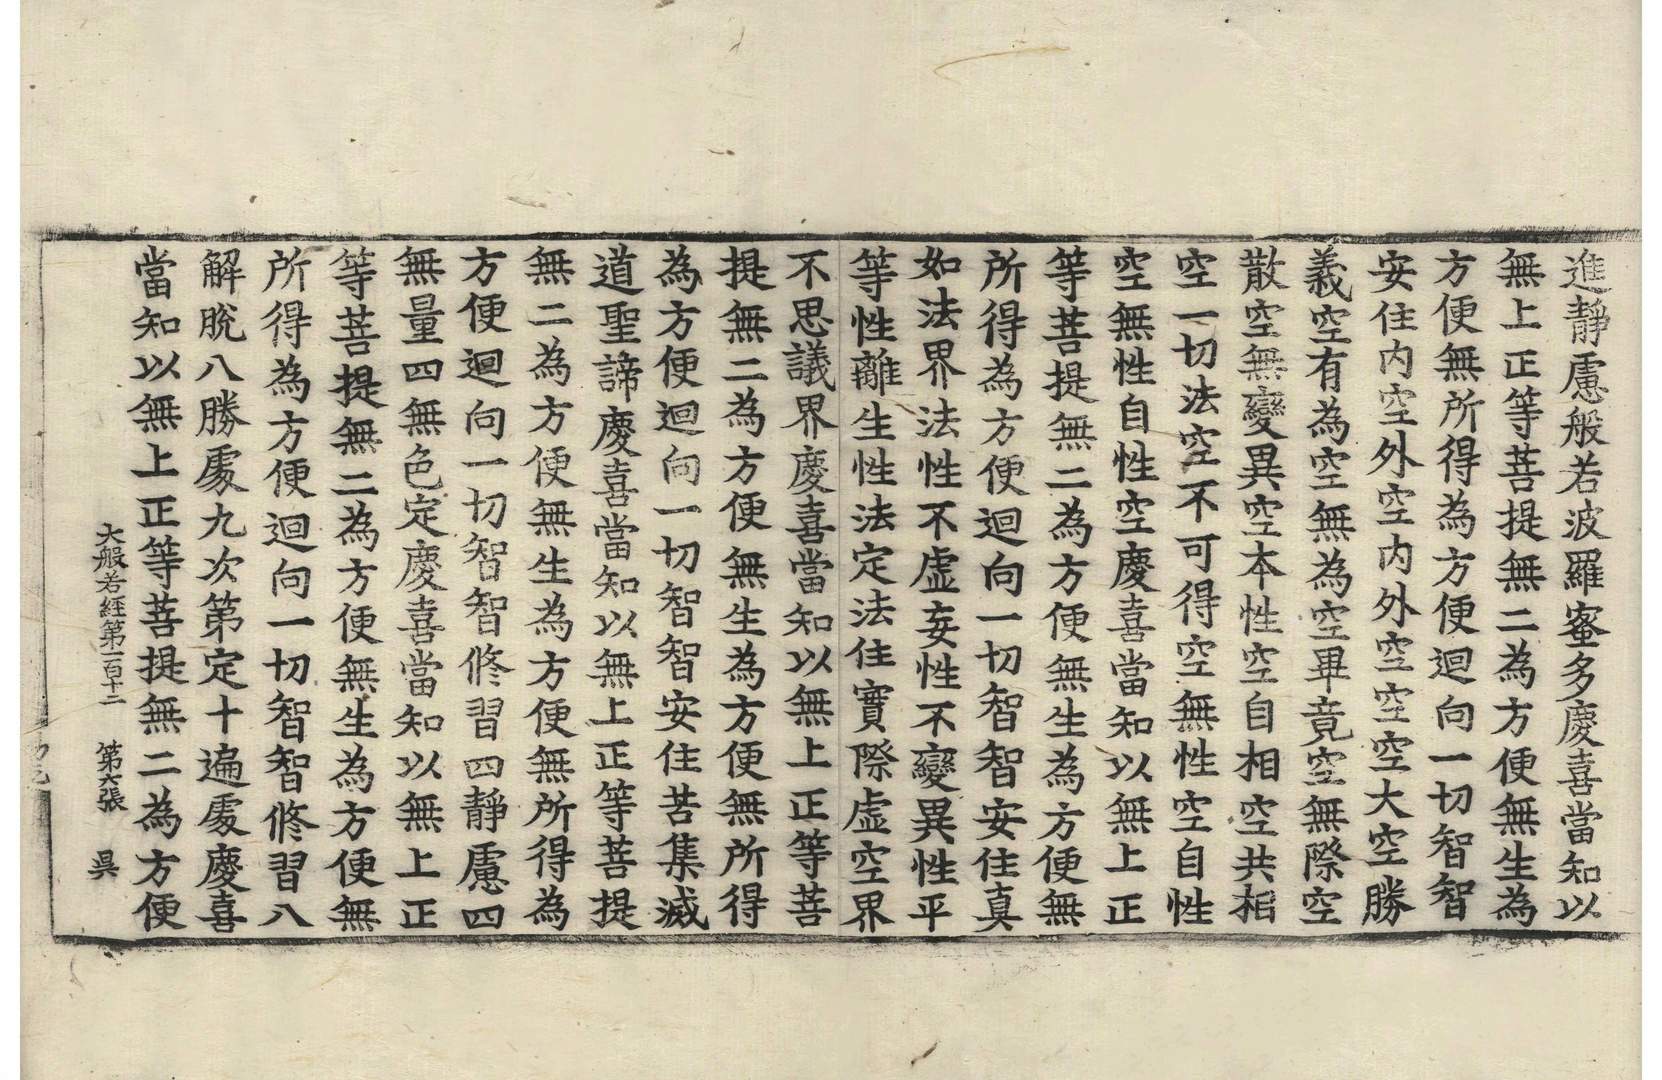 進靜慮般若波羅蜜多慶喜當知以
無上正等菩提無二為方便無生為
方便無所得為方便迴向一切智智
安住内空外空内外空空空大空勝
義空有為空無為空畢竟空無際空
散空無變異空本性空自相空共相
空一切法空不可得空無性空自性
空無性自性空慶喜當知以無上正
等菩提無二為方便無生為方便無
所得為方便迴向一切智智安住真
如法界法性不虛妄性不變異性平
等性離生性法定法住實際虛空界
不思議界慶喜當知以無上正等菩
提無二為方便無生為方便無所得
為方便迴向一切智智安住苦集滅
道聖諦慶喜當知以無上正等菩提
無二為方便無生為方便無所得為
方便迴向一切智智修習四靜慮四
無量四無色定慶喜當知以無上正
等菩提無二為方便無生為方便無
所得為方便迴向一切智智修習八
解脫八勝處九次第定十遍處慶喜
當知以無上正等菩提無二為方便
大般若經第一百十二 第六張 吳